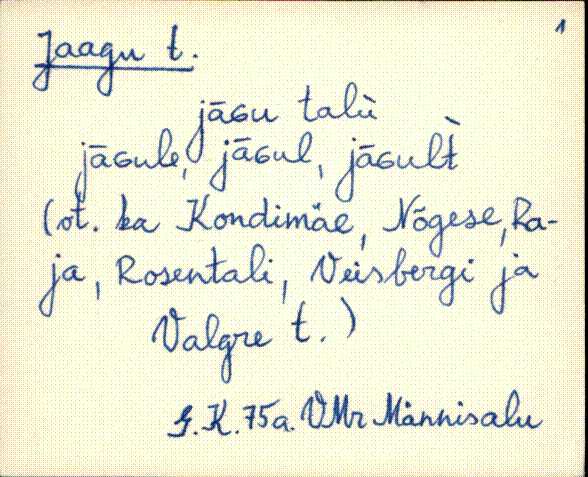 1
Jaagu t.
jāɢu talù
jāɢule, jāɢul, jāɢul̀t
(vt. ka Kondimäe, Nõgese, Ra-
ja, Rosentali, Veisbergi ja
Valgre t.)
G.K. 75a. VMr Männisalu